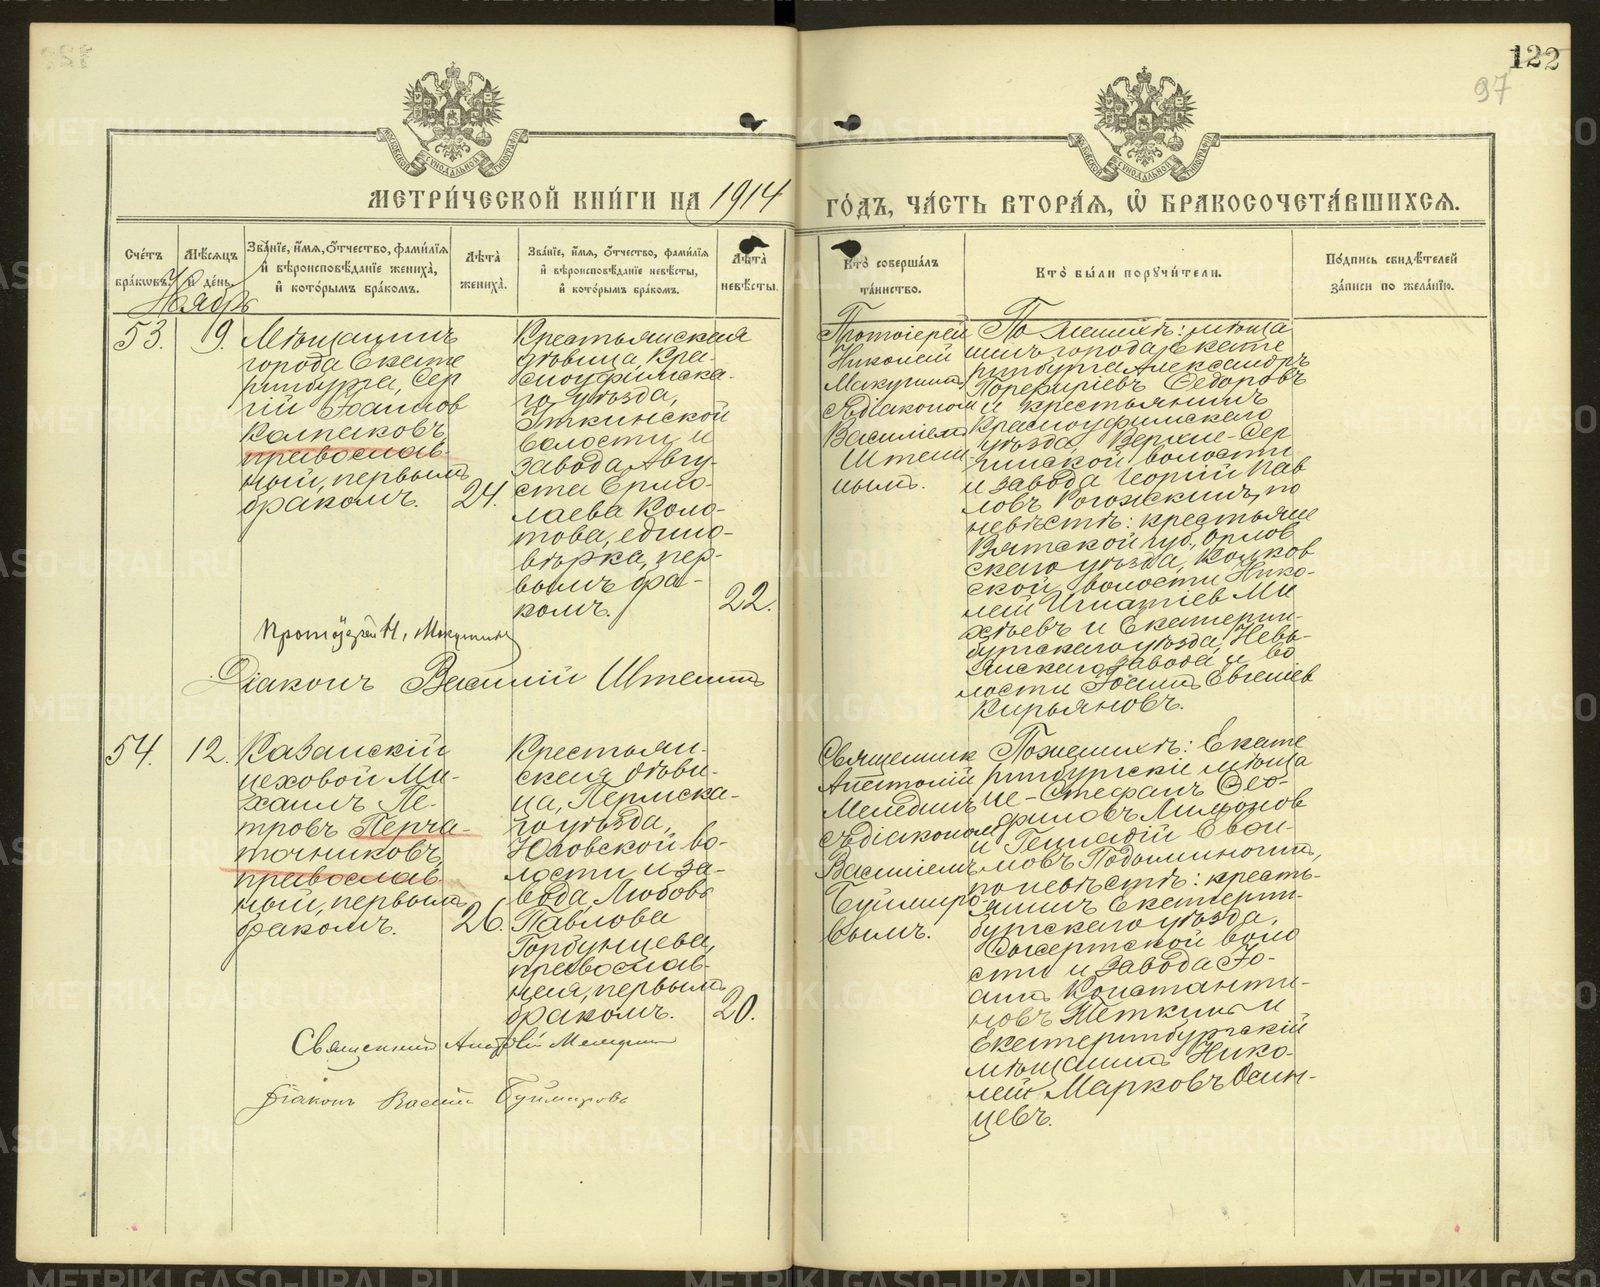 122
97
МОСКОВСКОЙ СУНОДАЛЬНОЙ ТИПОГРАФІИ
МОСКОВСКОЙ СУНОДАЛЬНОЙ ТИПОГРАФІИ
МЕТРИ́ЧЕСКОЙ КНИ́ГИ НА 1914
ГО́ДЪ, ЧА́СТЬ ВТОРА́Я, Ѽ БРАКОСОЧЕТА́ВШИХСЯ.
Сче́тъ бра́ковъ.
Мѣ́сяцъ и҆ де́нь.
Зва́нїе, и҆́мя, ѻ҆́тчество, фами́лїя
и҆ вѣроисповѣ́данїе жениха̀,
и҆ кото́рымъ бра́комъ.
Лѣ́та жениха̀.
Зва́нїе, и҆́мя, ѻ҆́тчество, фами́лїя
и҆ вѣроисповѣ́данїе невѣ́сты,
и҆ кото́рымъ бра́комъ.
Лѣ́та невѣ́сты.
Кто̀ соверша́лъ
та́инство.
Кто̀ бы́ли поручи́тели.
По́дпись свидѣ́телей
за́писи по жела́нїю.
Ноябрь
53.
9.
Мѣщанинъ
города Екате
ринбурга, Сер
гій Іоанновъ
Колпаковъ,
православ-
ный, первымъ
бракомъ.
24.
Крестьянская
дѣвица, Кра-
сноуфимска-
го уѣзда,
Уткинской
волости и
завода Авгу-
ста Ермо-
лаева Коло-
това, едино-
вѣрка, пер-
вымъ бра-
комъ.
22.
Протоіерей
Николай
Макушинъ
съ діакономъ
Василіемъ
Штени-
нымъ.
По женихѣ: мѣща
нинъ города Екате
ринбурга Александръ
Порфиріевъ Ѳедоровъ
и крестьянинъ
Красноуфимскаго
уѣзда, Верхне-Сер
гинской волости
и завода Георгій Пав
ловъ Рогожскинъ, по
невѣстѣ: крестьяне
Вятской губ., Орлов
скаго уѣзда,
ской волости Нико-
лай Игнатіев Ми
хѣевъ и Екатерин-
бургскаго уѣзда, Невь-
янскаго завода и во
лости Іоаннъ Евгеніев
Кирьяновъ.
Протоіерей Н. Макушинъ
Діаконъ Василій Штенинъ
54.
12.
Казанскій
цеховой Ми-
хаилъ Пе-
тровъ Перча-
точниковъ,
православ-
ный, первымъ
бракомъ.
26.
Крестьян-
ская дѣви-
ца, Пермска-
го уѣзда,
Юговской во-
лости и за-
вода Любовь
Павлова
Горбунцева,
православ-
ная, первымъ
бракомъ.
20.
Священник
Анатолій
Мелединъ
съ діакономъ
Василіемъ
Буймиро-
вымъ.
По женихѣ: Екате
ринбургскіе мѣща
не - Стефанъ Ѳео-
филовъ Лимонов
и Геннадій Евфи-
мовъ Подоминогинъ,
по невѣстѣ: кресть-
янинъ Екатерин-
бургскаго уѣзда,
Сысертской воло
сти и завода Іо-
аннъ Константи-
новъ Тѣткинъ и
Екатеринбургскій
мѣщанинъ Нико-
лай Марковъ Осин-
цевъ.
Священникъ Анатолій Меледин
Діаконъ Василій Буймировъ
METRIKI.GASO-URAL.RU